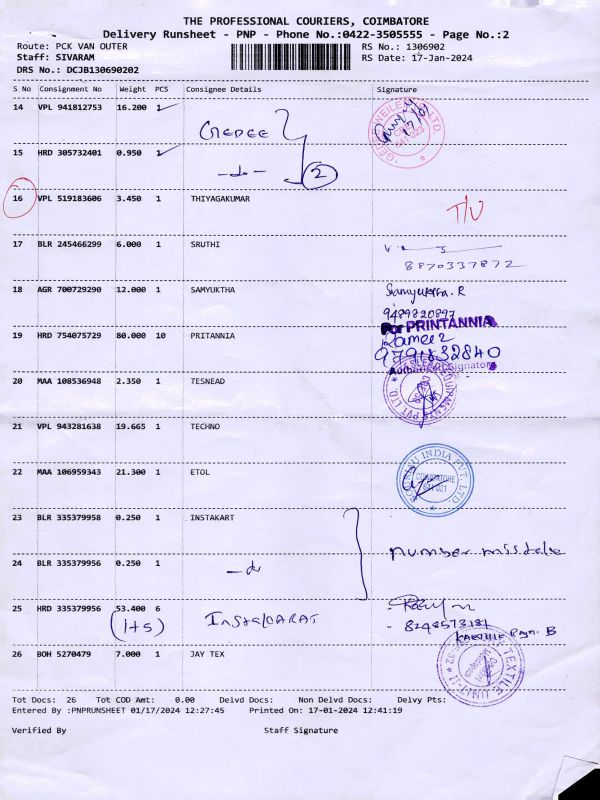 THE PROFESSIONAL COURIERS, COIMBATORE
Delivery Runsheet - PNP - Phone No.:0422-3505555 - Page No.:2
Route: PCK VAN OUTER RS No.: 1306902
Staff: SIVARAM RS Date: 17-Jan-2024
DRS No.: DCJB130690202
S No Consignment No Weight PCS Consignee Details Signature
14 VPL 941812753 16.200 1
17/01
15 HRD 305732401 0.950 1 -do- 2
16 VPL 519183606 3.450 1 THIYAGAKUMAR T/U
17 BLR 245466299 6.000 1 SRUTHI
8870337872
18 AGR 700729290 12.000 1 SAMYUKTHA Samyuktha.R
9489820897
For PRINTANNIA
19 HRD 754075729 80.000 10 PRITANNIA Rameez
9791832840
Authorised Signatory
20 MAA 108536948 2.350 1 TESNEAD
21 VPL 943281638 19.665 1 TECHNO
22 MAA 106959343 21.300 1 ETOL
INDIA PVT. LTD.
COIMBATORE
641 021
23 BLR 335379958 0.250 1 INSTAKART
number misstake
24 BLR 335379956 0.250 1 -do
25 HRD 335379956 53.400 6
(1+5)
8248573181
26 BOH 5270479 7.000 1 JAY TEX
TEXTILE UNIT-17
Tot Docs: 26 Tot COD Amt: 0.00 Delvd Docs: Non Delvd Docs: Delvy Pts:
Entered By :PNPRUNSHEET 01/17/2024 12:27:45 Printed On: 17-01-2024 12:41:19
Verified By Staff Signature